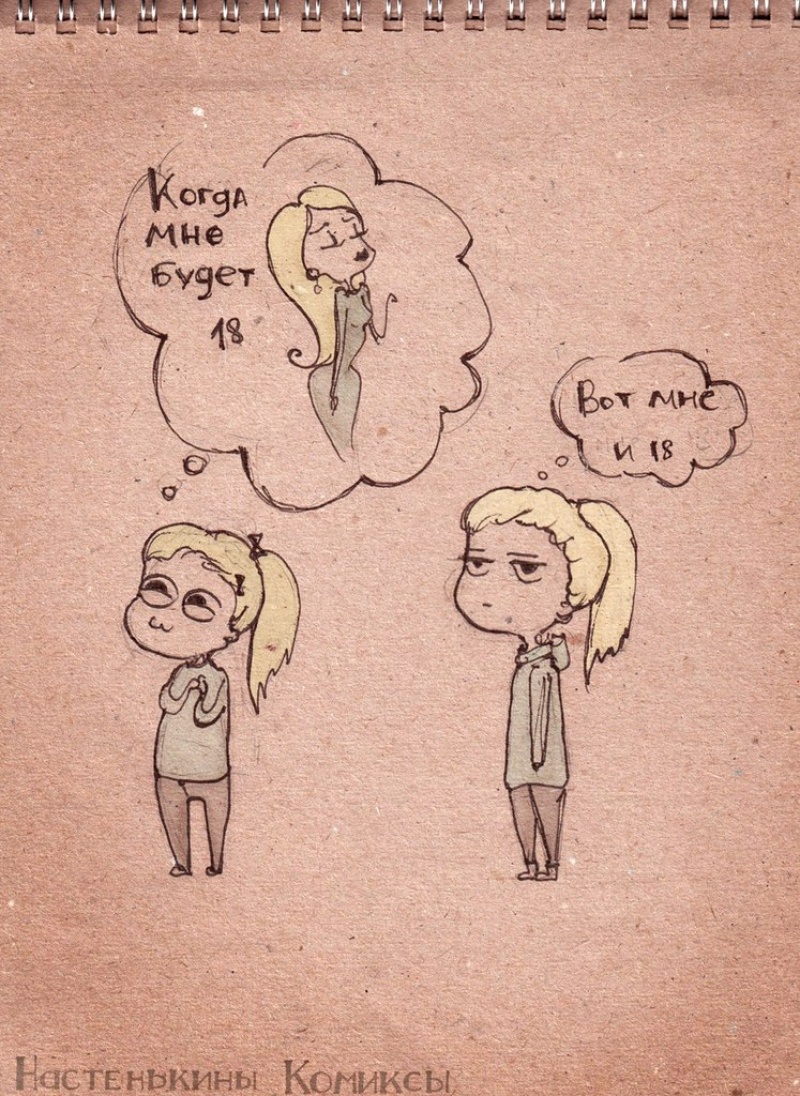 Когда
мне
будет
18
Вот мне
и 18
Настенькины Комиксы